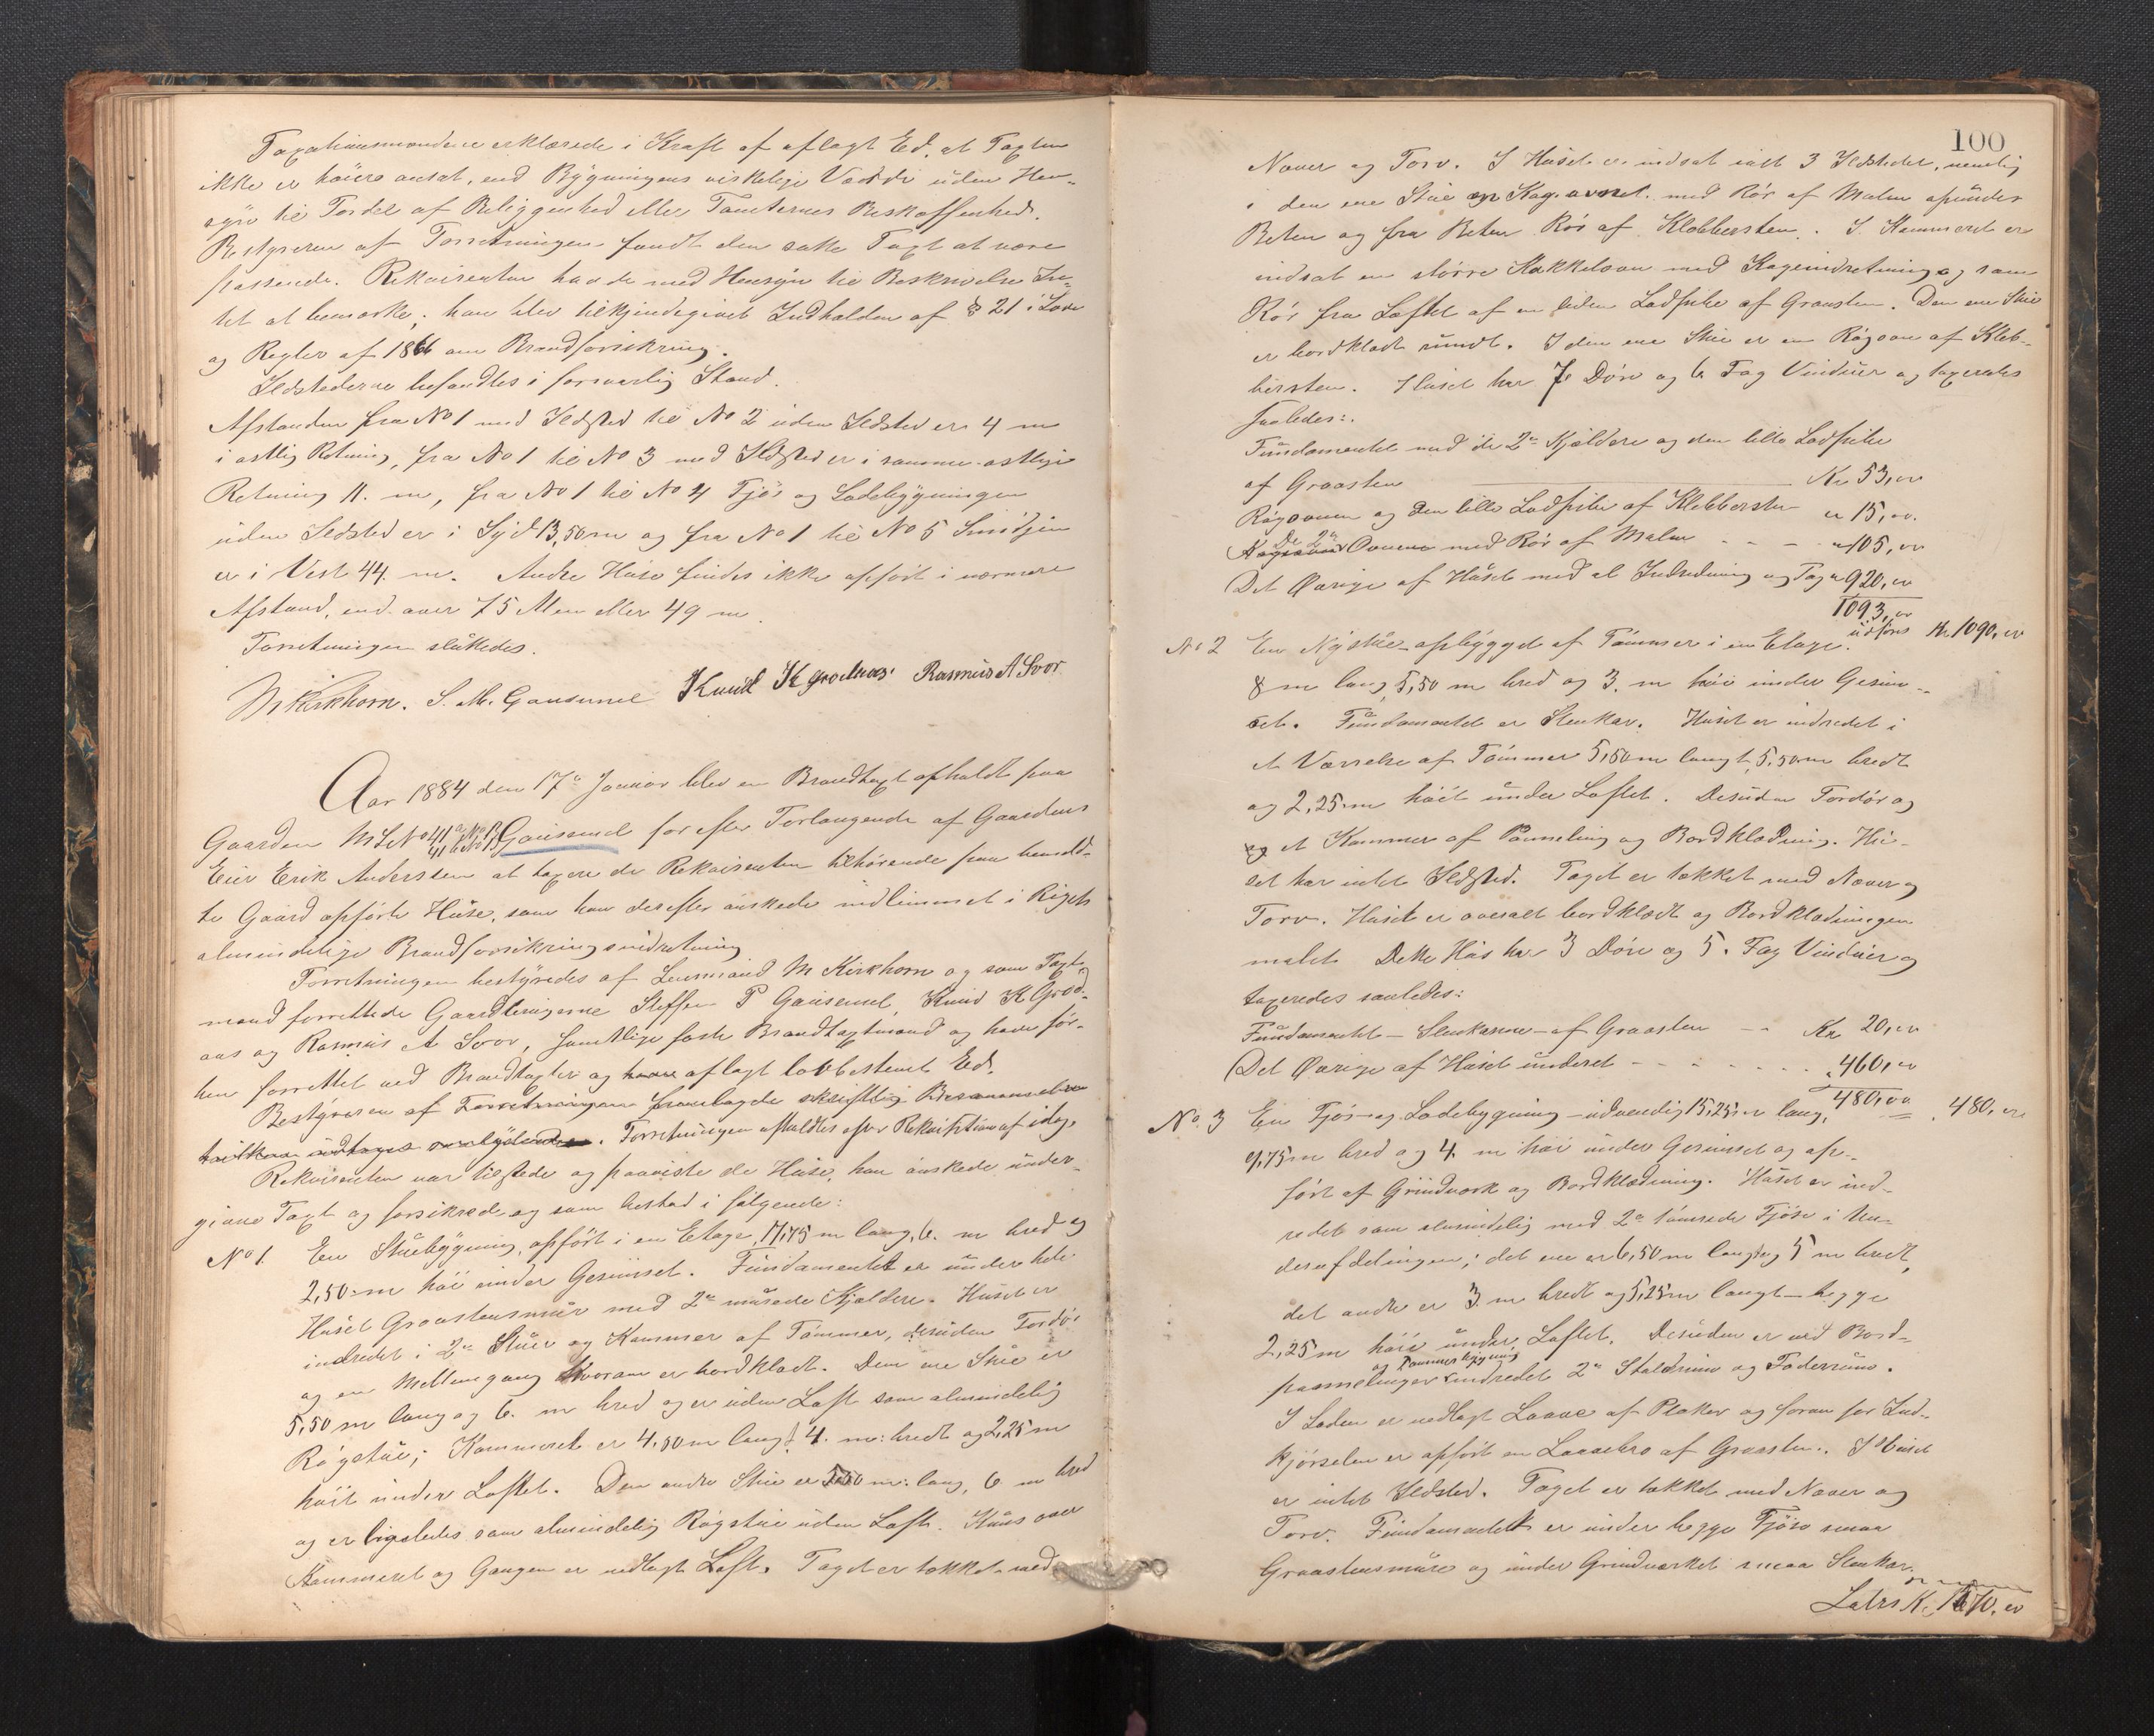 Taxationsmændene erklærede i Kraft af aflagt Ed, at Taxten
ikke er høiere ansat, end Bygningens virkelige Værdi uden Hen-
syn til Fordel af Beliggenhed eller Tomternes Beskaffenhed.
Bestyreren af Forretningen fandt den satte Taxt at være
passende. Rekvirenten havde med Hensyn til Beskrivelsen In-
tet at bemærke; han blev tilkjendegivet Indholden af § 21 i Lov
og Regler af 1866 om Brandforsikring.
Ildstederne befandtes i forsvarlig Stand.
Afstanden fra No 1 med Ildsted til No 2 uden Ildsted er 4 m
i østlig Retning, fra No 1 til No 3 med Ildsted er i samme østlige
Retning 11. m, fra No 1 til No 4 Fjøs og Ladebygningen
uden Ildsted er i Syd 13,50 m og fra No 1 til No 5 Smidjen
er i Vest 44. m. Andre Huse findes ikke opført i nærmere
Afstand, end over 75 Alen eller 49 m.
Forretningen sluttedes.
M Kirkhorn. S. M. Gausemel Knud K Grodaas. Rasmus A Svor
Aar 1884 den 17de Januar blev en Brandtaxt afholdt paa
Gaarden M L No 41 Gausemel for efter Forlangende af Gaardens
Eier Erik Andersen at taxere de Rekvirenten tilhørende paa bemeld-
te Gaard opførte Huse, som han derefter ønskede indlemmet i Rigets
almindelige Brandforsikringsindretning
Forretningen bestyredes af Lensmand M Kirkhorn og som Taxt-
mænd forrettede Gaardbrugerne Steffen P Gausemel, Knud K Grod-
aas og Rasmus A Svor, samtlige faste Brandtaxtmænd og have før-
hen forrettet ved Brandtaxter og have aflagt lovbestemt Ed.
Bestyreren af Forretningen fremlagde skriftlig
. Forretningen afholdtes efter Rekvisition af idag.
Rekvirenten var tilstede og paaviste de Huse, han ønskede under-
givne Taxt og forsikrede, og som bestod i følgende:
No 1. En Stuebygning, opført i en Etage, 17,75 m lang, 6. m bred og
2,50 m høi under Gesimset. Fundamentet er under hele
Huset Graastensmur med 2de murede Kjældere. Huset er
indredet i 2de Stuer og Kammer af Tømmer, desuden Fordør
og en Mellemgang hvoraf er bordklædt. Den ene Stue er
5,50 m lang og 6. m bred og er uden Loft som almindelig
Røgstue; Kammeret er 4,50 m langt, 4. m: bredt og 2,25 m
høit under Loftet. Den andre Stue er 5,50 m: lang, 6 m bred
og er ligeledes som almindelig Røgstue uden Loft. Kuns over
Kammeret og Gangen er nedlagt Loft. Taget er tækket med
100
Næver og Torv. I Huset er indsat ialt 3 Ildsteder, nemlig
i den ene Stue en Kogeovnet med Rør af Malm opunder
Beten og fra Beten Rør af Klebbersten. I Kammeret er
indsat en større Kakkelovn med Kogeindretning og samt
Rør fra Loftet af en liden Ladpibe af Graasten. Den ene Stue
er bordklædt rundt. I den ene Stue er en Røgovn af Kleb-
bersten. Huset har 7 Døre og 6 Fag Vinduer og taxeredes
saaledes:
Fundamentet med de 2de Kjældere og den lille Ladpibe
af Graasten Kr 53,00
Røgovnen og den lille Ladpibe af Klebbersten " 15,00.
De 2de Ovnene med Rør af Malm - - - " 105,00
Det Øvrige af Huset med al Indredning og Tag " 920,00
1093,00
udføres Kr 1090,00
No 2 En Nystue opbygget af Tømmer i en Etage.
8 m lang, 5,50 m bred og 3. m høi under Gesim-
set. Fundamentet er Stenkar. Huset er indredet i
et Værrelse af Tømmer 5,50 m langt, 5,50 m bredt
og 2,25 m høit under Loftet. Desuden Fordør og
og et Kammer af Panneling og Bordklædning. Hu-
set har intet Ildsted. Taget er tækket med Næver og
Torv. Huset er overalt bordklædt og Bordklædningen
malet. Dette Hus har 3 Døre og 5. Fag Vinduer og
taxeredes saaledes:
Fundamentet - Stenkarene - af Graasten - - Kr 20,00
Det Øvrige af Huset underet - - - - - - " 460,00
480,00 480,00
No 3 En Fjøs- og Ladebygning - udvendig 15,25 m lang,
9,75 m bred og 4. m høi under Gesimset og op-
ført af Grindværk og Bordklædning. Huset er ind-
redet som almindelig med 2de tømrede Fjøse i Un-
derafdelingen; det ene er 6,50 m langt og 5 m bredt,
det andre er 3. m bredt og 5,25 m langt - begge
2,25 m høie under Loftet. Desuden er ved Bord-
pannelinger og Tømmerbygning indredet 2de Staldrum og Foderrum.
I Laden er nedlagt Laave af Planker og foran for Ind-
kjørselen er opført en Laavebro af Graasten. I Huset
er intet Ildsted. Taget er tækket med Næver og
Torv. Fundamentet er under begge Fjøse smaa
Graastensmure og under Grindværket smaa Stenkar.
Latus Kr 1570,00